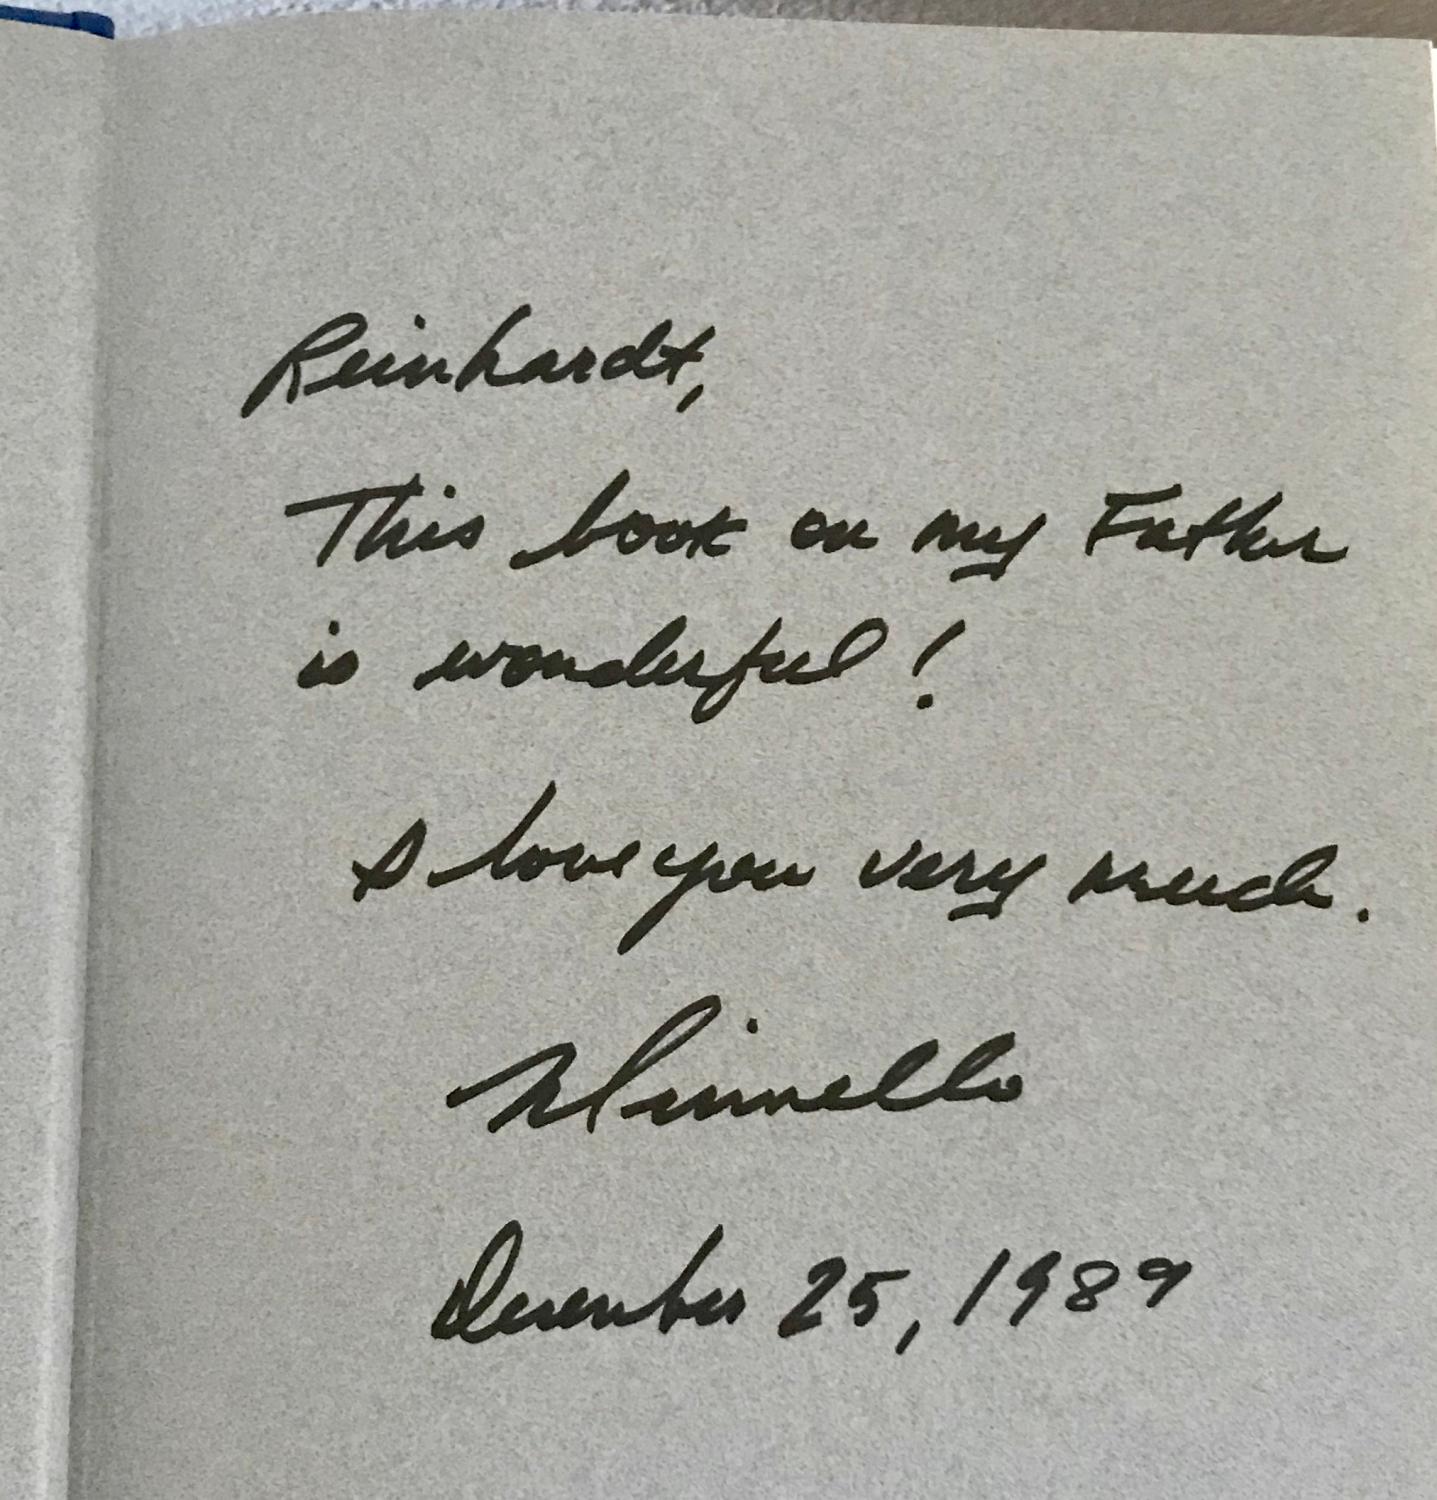 Reinhardt,
This book on my Father
is wonderful!
I love you very much.
Minnello
December 25, 1989